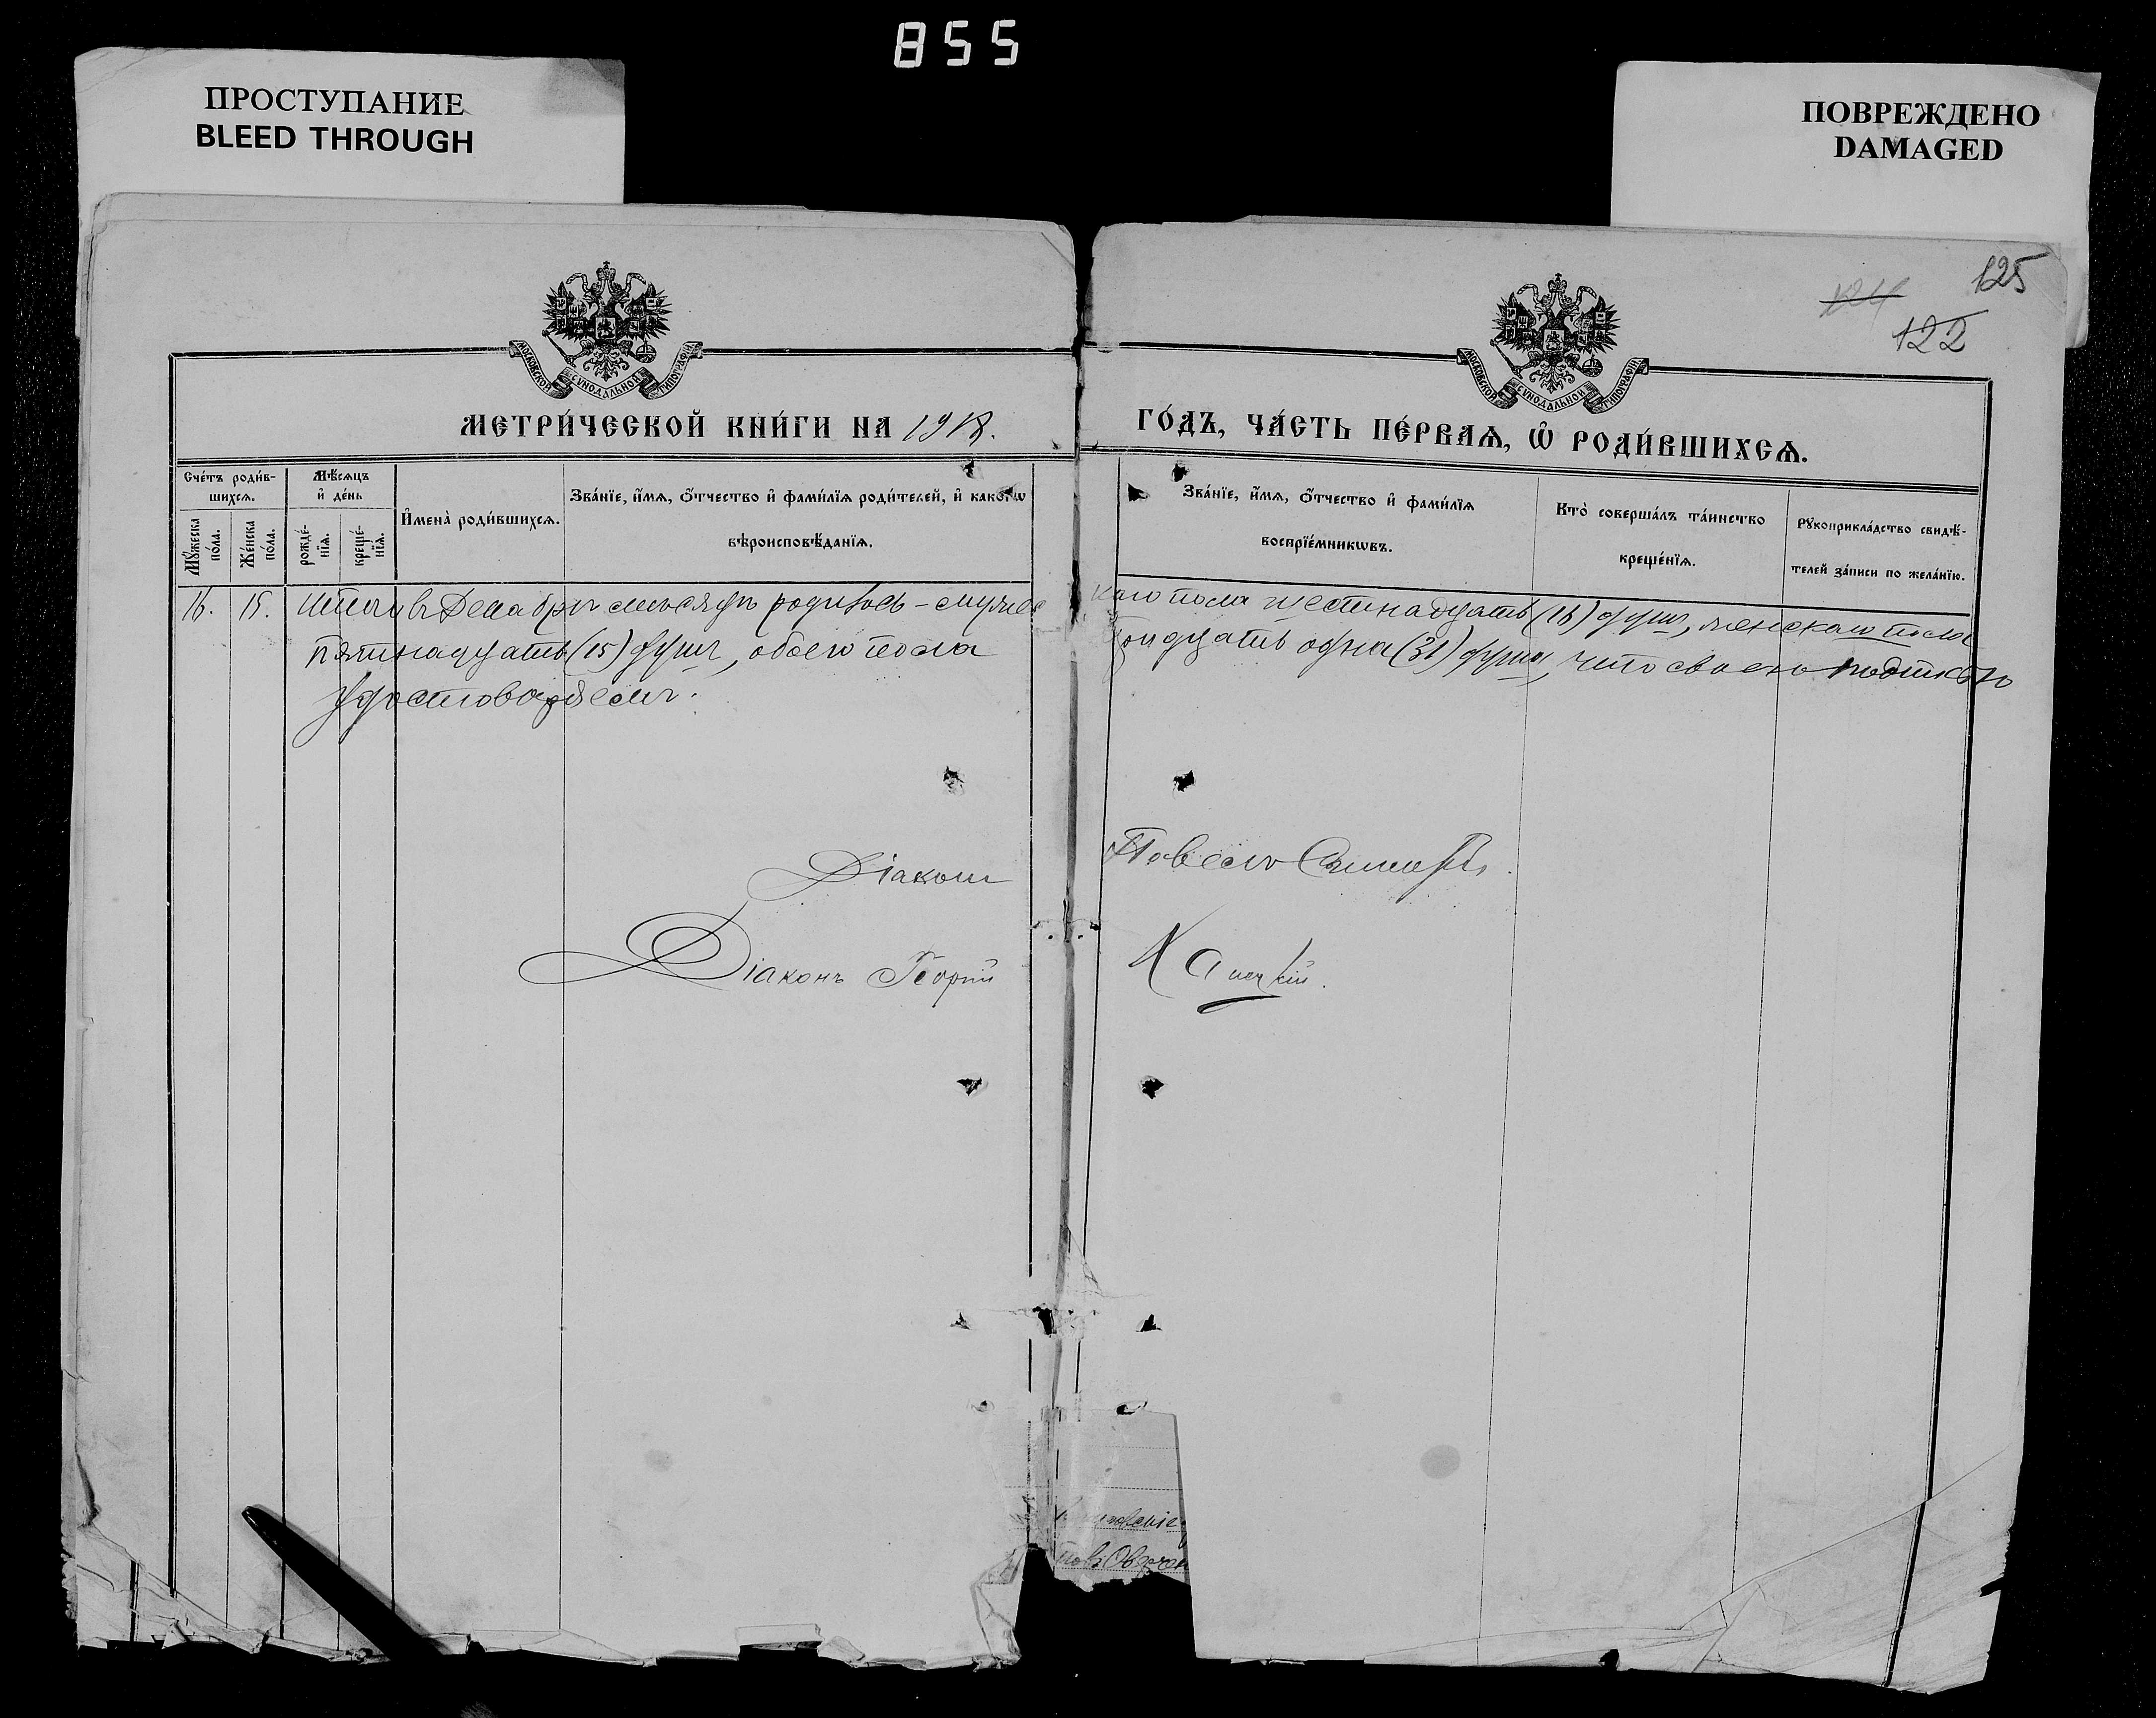 855
ПРОСТУПАНИЕ
BLEED THROUGH
ПОВРЕЖДЕНО
DAMAGED
125
124
122
МОСКОВСКОЙ СѴНОДАЛЬНОЙ ТИПОГРАФІИ
МОСКОВСКОЙ СѴНОДАЛЬНОЙ ТИПОГРАФІИ
МЕТРИ́ЧЕСКОЙ КНИ́ГИ НА 1918.
ГО́ДЪ, ЧА́СТЬ ПЕ́РВАѦ, Ѡ҆ РОДИ́ВШИХСѦ.
Сче́тъ роди́в-
шихсѧ.
Мꙋ́жеска
по́ла.
Же́нска
по́ла.
Мѣ́сѧцъ
и҆ де́нь
рожде́-
нїѧ.
креще́-
нїѧ.
И҆мена̀ роди́вшихсѧ.
Зва́нїе, и҆́мѧ, ѻ҆́тчество и҆ фами́лїѧ роди́телей, и҆ како́гѡ
вѣроисповѣ́данїѧ.
Зва́нїе, и҆́мѧ, ѻ҆́тчество и҆ фами́лїѧ
воспрїе́мникѡвъ.
Кто̀ соверша́лъ та́инство
креще́нїѧ.
Рꙋкоприкла́дство свидѣ́-
телей за́писи по жела́нїю.
16. 15. Итого въ Декабрѣ мѣсяцѣ родилось – мужес
каго пола шестнадцать (16) душъ, женскаго пола
пятнадцать (15) душъ, обоего пола
тридцать одна (31) душа, что своею подписью
удостоверяемъ.
Діаконъ
Діаконъ Георгій